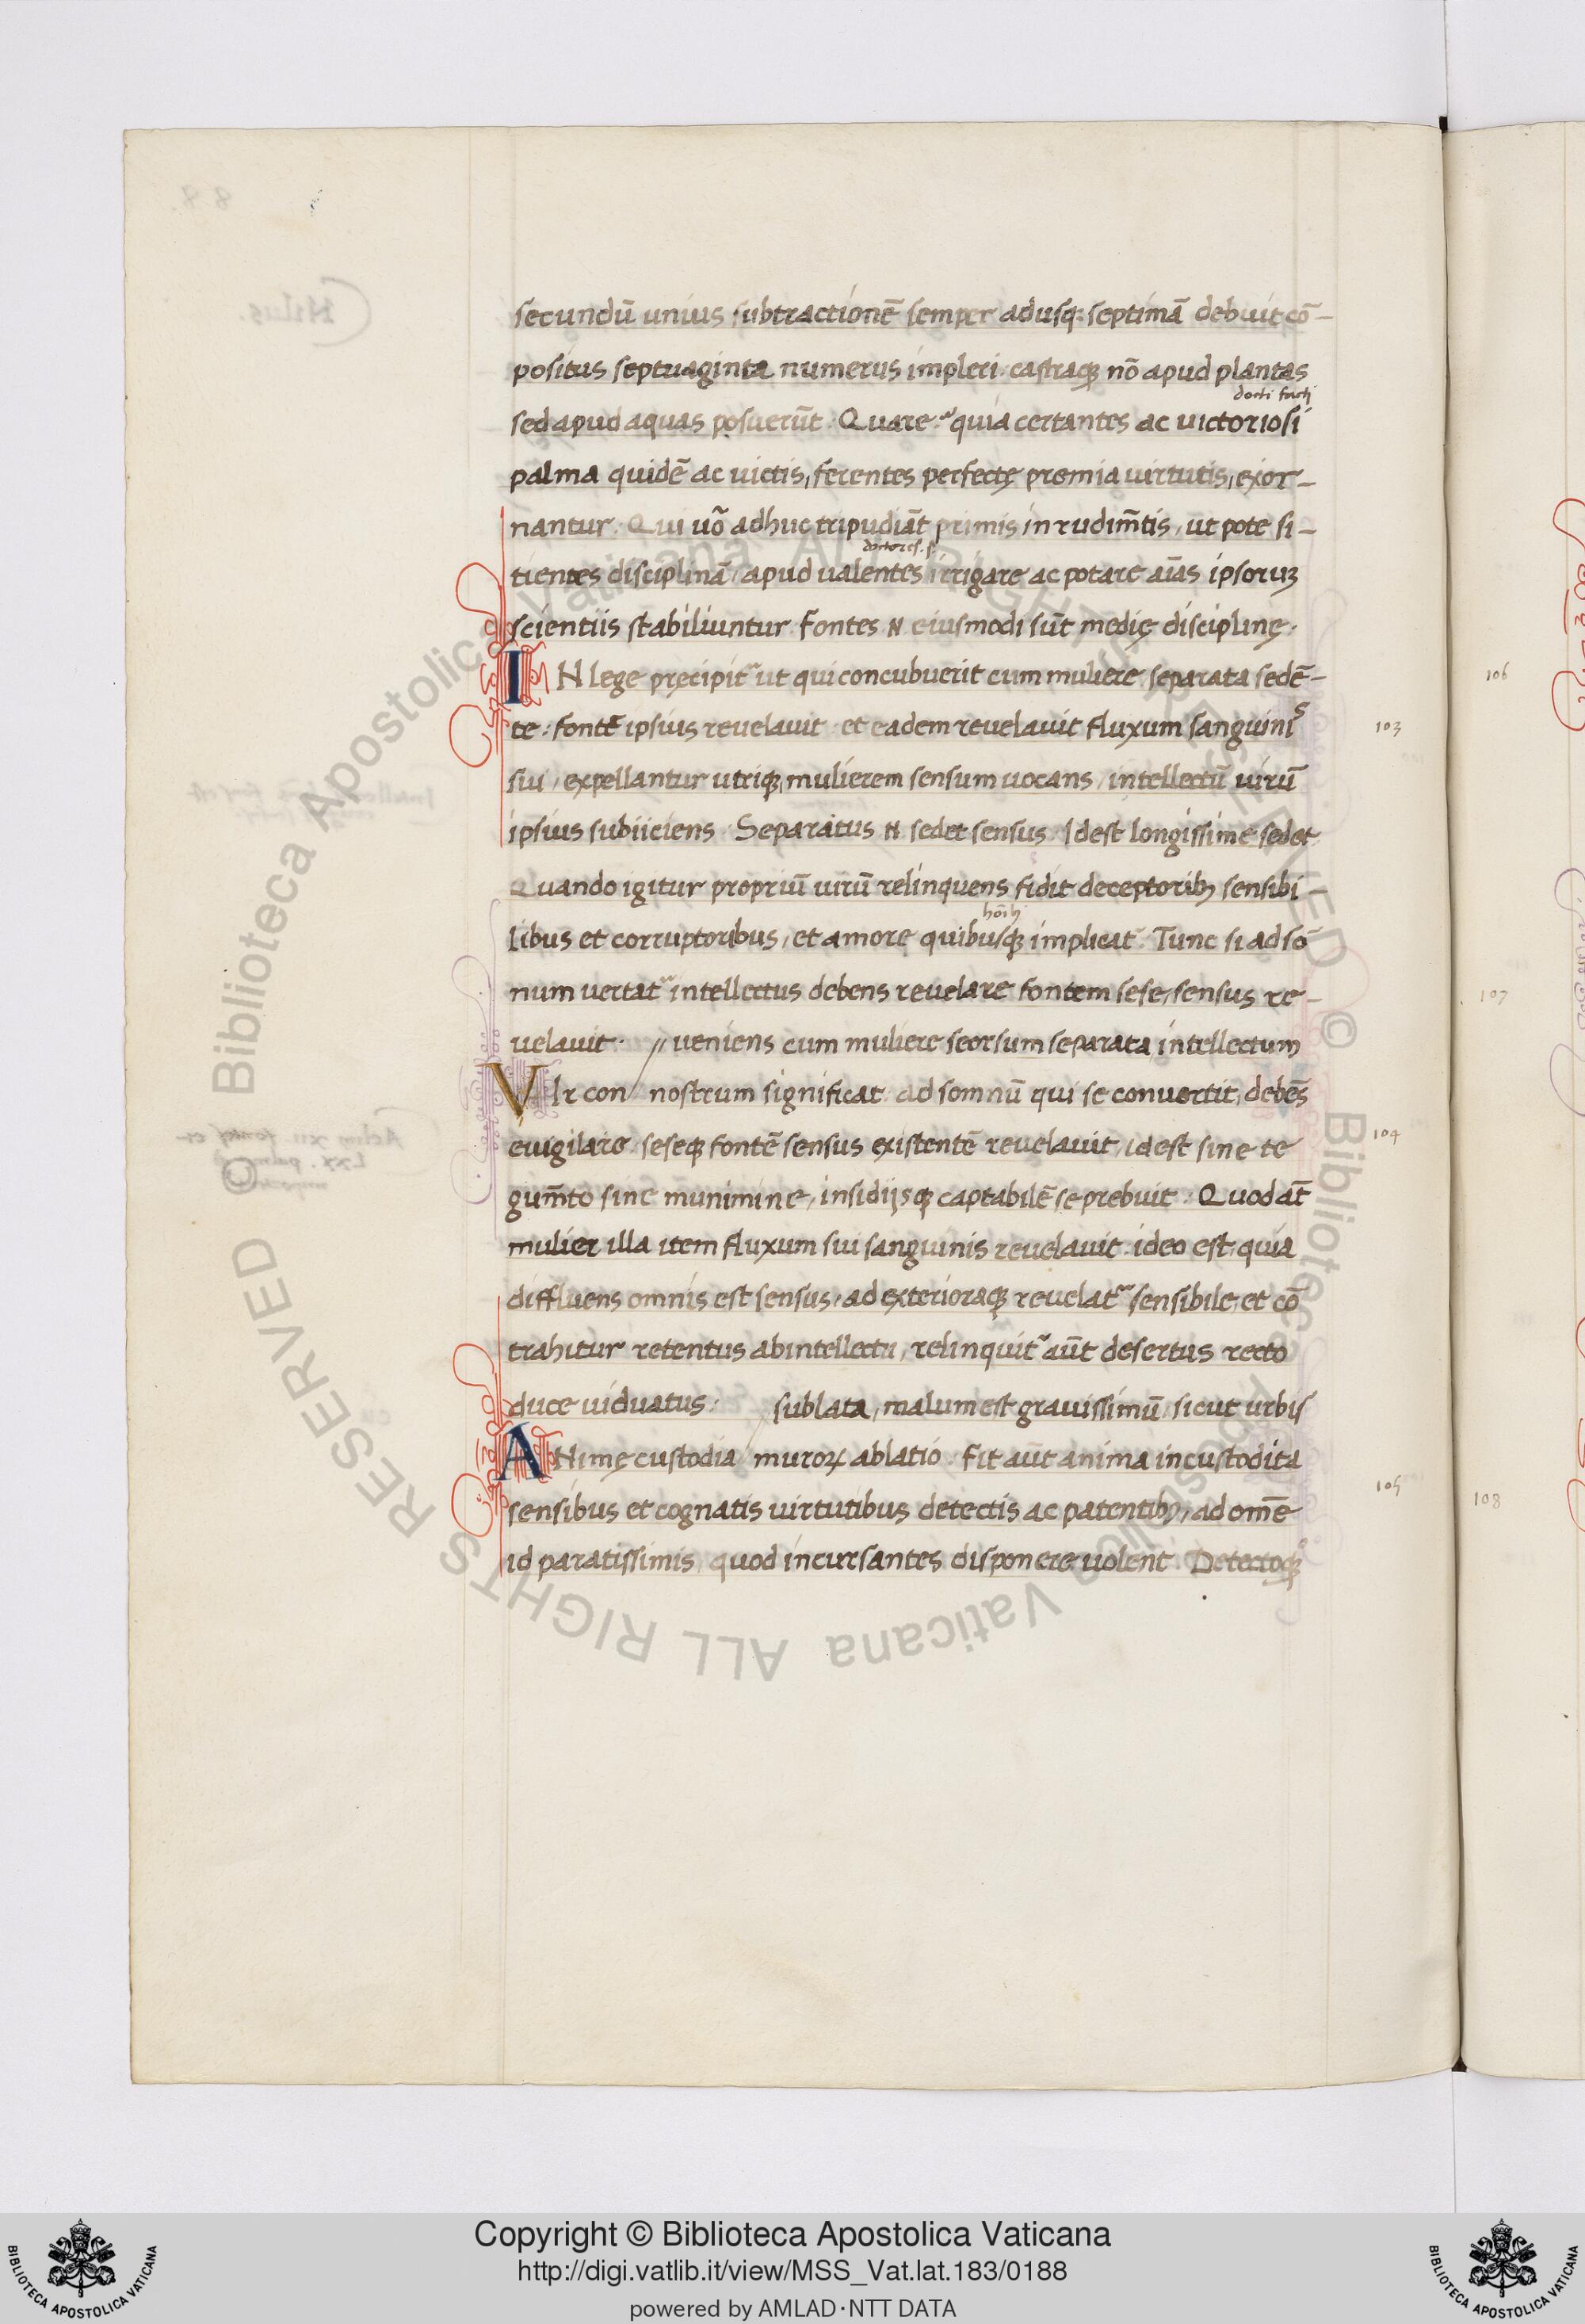 secundū unius subtractionē semper adusq; septimā debuit cō-
positus septuaginta numerus impleri. castraq; nō apud plantas
docti facti
sed apud aquas posuerūt. Quare? quia certantes ac uictoriosi
palma quidē ac uictis, ferentes perfectę premia uirtutis, exor-
nantur. Qui uō adhuc tripudiāt primis in rudim̄tis, ut pote si-
doctores. s.
tientes disciplinā, apud ualentes irrigare ac potare aīas ipsoruꝫ
scientiis stabiliuntur. Fontes N eiusmodi sūt medię disciplinę.
IN lege pręcipit᷑ ut qui concubuerit cum muliere separata sedē-
te: fontē ipsius reuelauit et eadem reuelauit fluxum sanguinis
sui, expellantur utriq;, mulierem sensum uocans, intellectū uirū
ipsius subiiciens. Separatus N sedet sensus. Idest longissime sedet.
Quando igitur propriū uirū relinquens fidit deceptorib; sensibi-
hoīb;
libus et corruptoribus, et amore quibusq; implicat᷑. Tunc si ad so
num uertat᷑ intellectus debens reuelare fontem sese, sensus re-
uelauit. // ueniens cum muliere seorsum separata, intellectum
VIr con / nostrum significat. ad somnū qui se conuertit, debēs
euigilare. seseq; fontē sensus existentē reuelauit, idest sine te
gum̄to sine munimine, insidijsq; captabilē se prebuit. Quod āt
mulier illa item fluxum sui sanguinis reuelauit. ideo est, quia
diffluens omnis est sensus, ad exterioraq; reuelat᷑ sensibile, et cō
trahitur retentus ab intellectu, relinquit᷑ aūt desertus recto
duce uiduatus. sublata, malum est grauissimū, sicut urbis
ANimę custodia / muroꝝ ablatio. Fit aūt anima incustodita
sensibus et cognatis uirtutibus detectis ac patentib;, ad om̄e
id paratissimis, quod incursantes disponere uolent. Detectoq;
103
104
105
106
107
108
Copyright © Biblioteca Apostolica Vaticana
http://digi.vatlib.it/view/MSS_Vat.lat.183/0188
powered by AMLAD·NTT DATA
BIBLIOTECA APOSTOLICA VATICANA
BIBLIOTECA APOSTOLICA VATICANA
© Biblioteca Apostolica Vaticana ALL RIGHTS RESERVED © Biblioteca Apostolica Vaticana ALL RIGHTS RESERVED